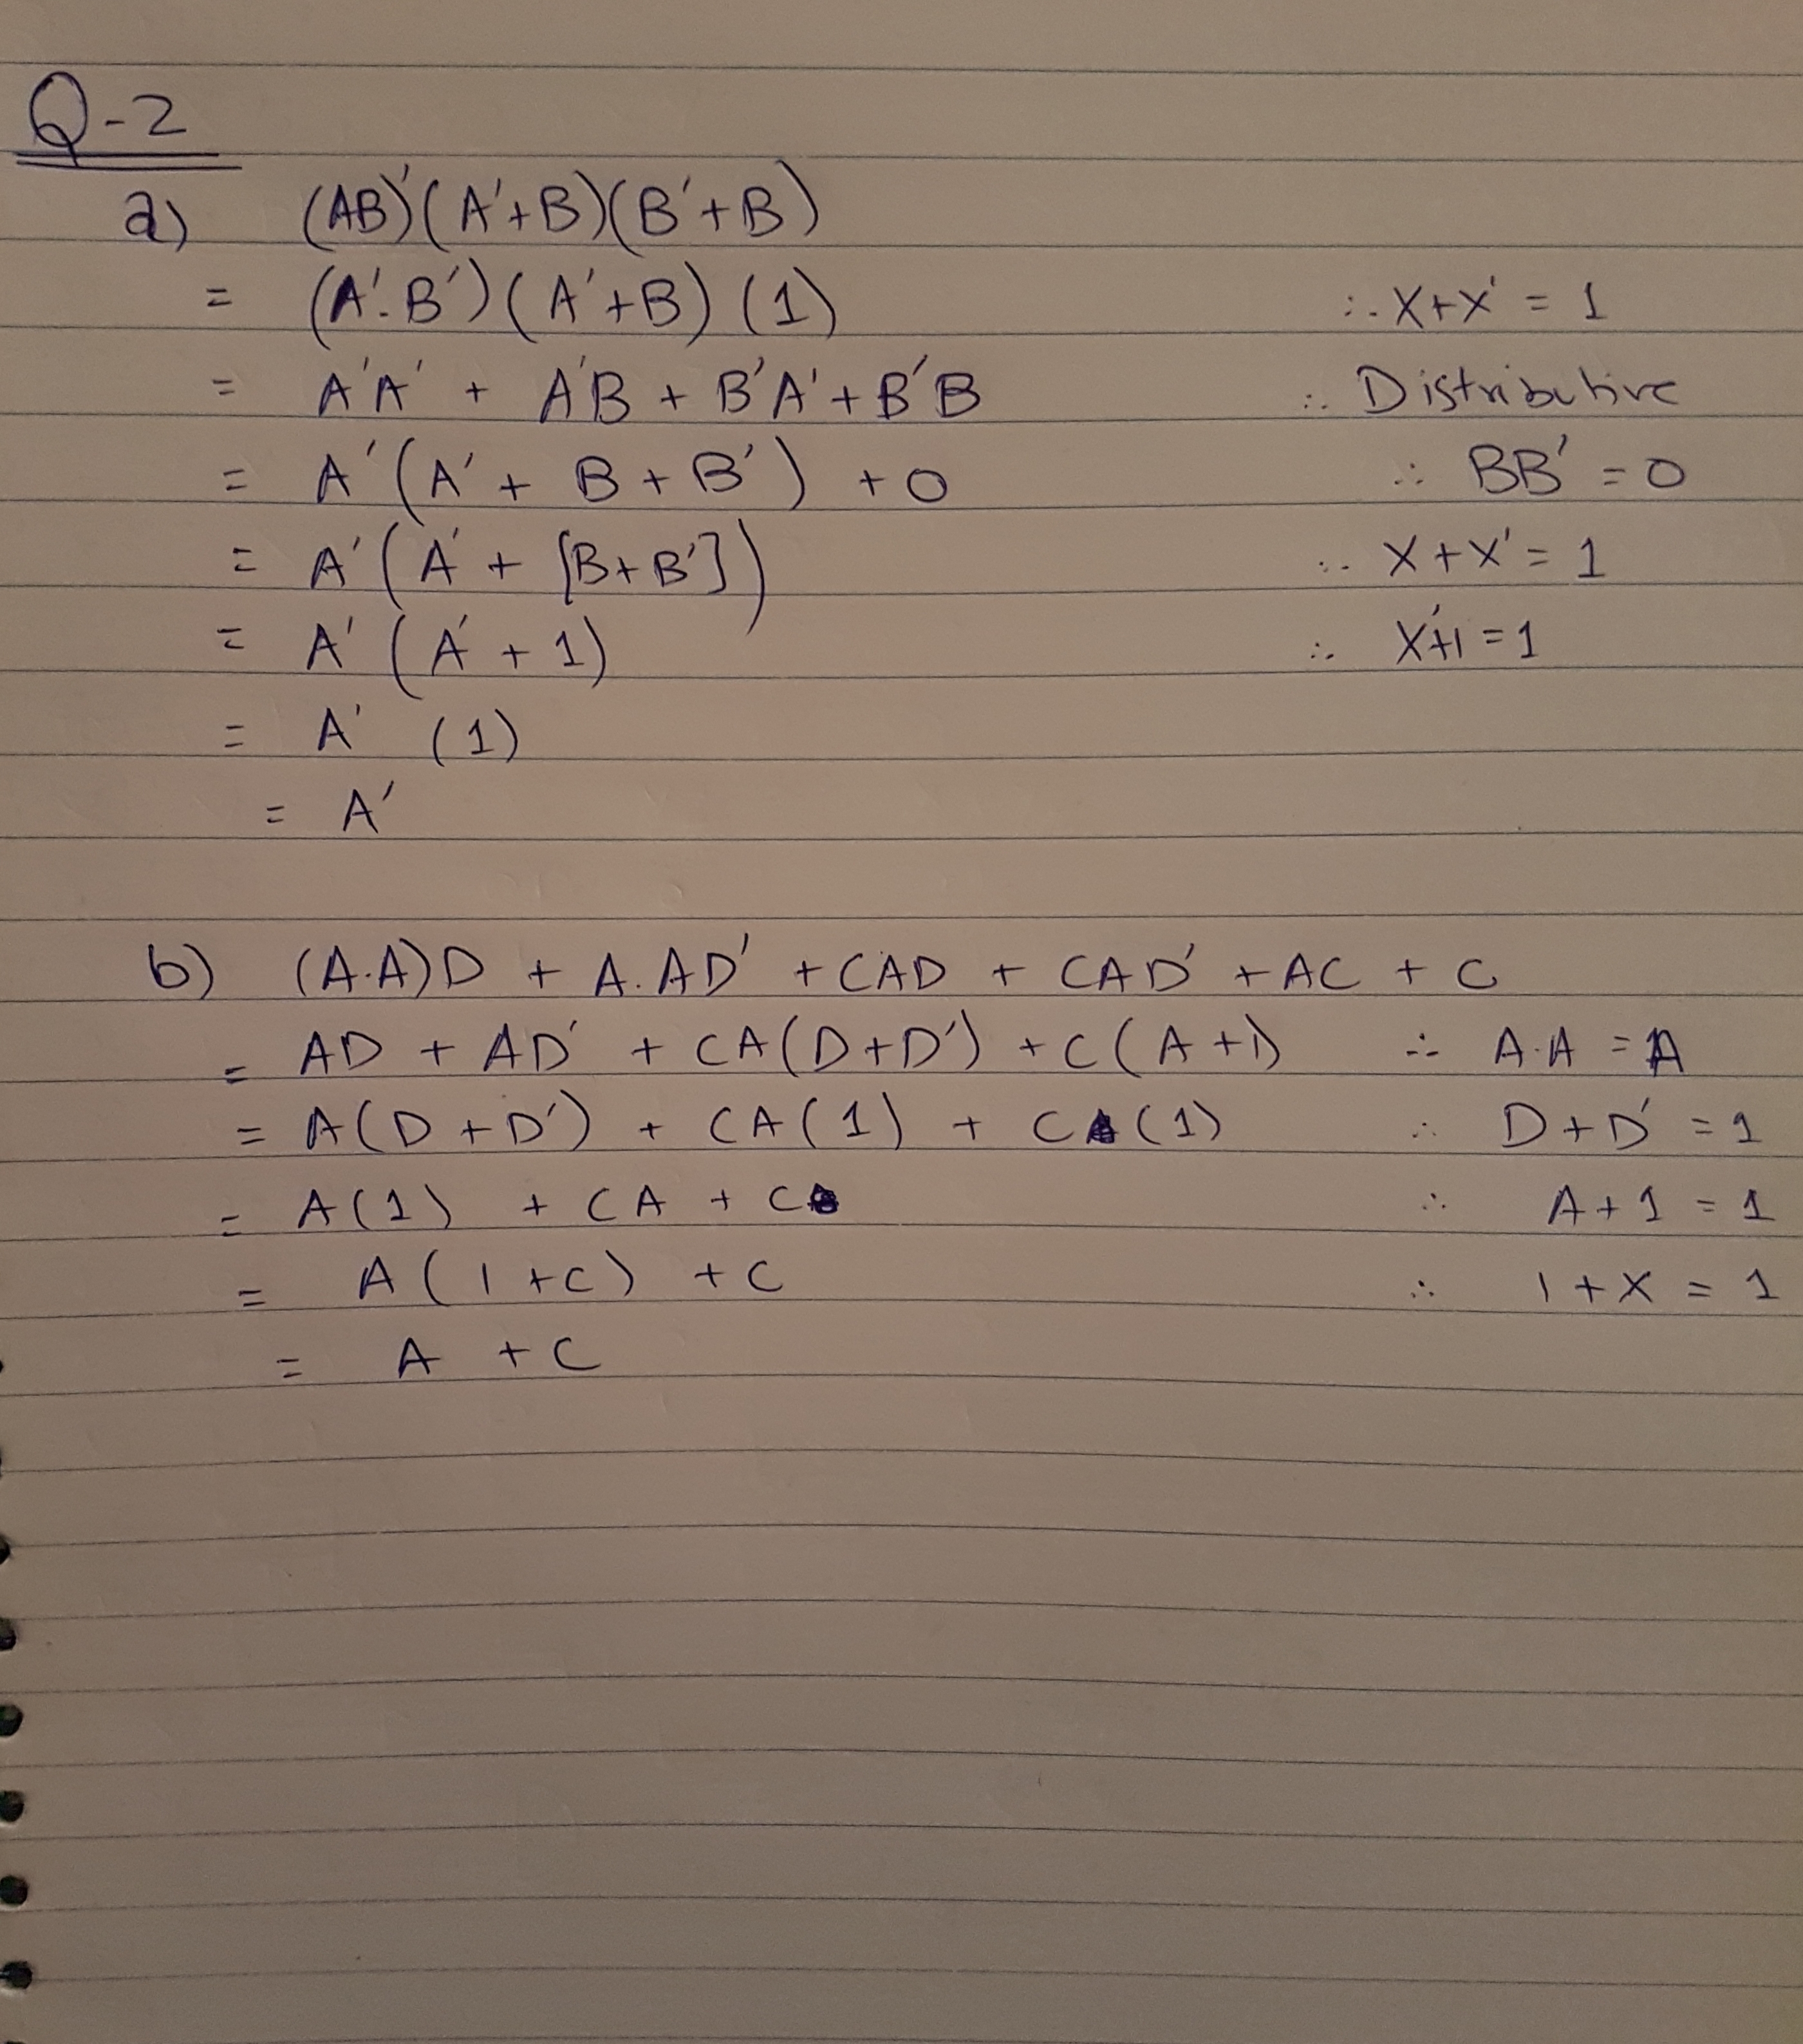 Q-2
a) (AB)'(A'+B)(B'+B)
= (A'.B')(A'+B) (1) ∴ X+X' = 1
= A'A' + A'B + B'A' + B'B ∴ Distributive
= A'(A' + B + B') + 0 ∴ BB' = 0
= A'(A' + [B+B']) ∴ X+X' = 1
= A'(A' + 1) ∴ X'+1 = 1
= A' (1)
= A'
b) (A.A)D + A.AD' + CAD + CAD' + AC + C
= AD + AD' + CA(D+D') + C(A+1) ∴ A.A = A
= A(D+D') + CA(1) + C(1) ∴ D+D' = 1
= A(1) + CA + C ∴ A+1 = 1
= A(1+C) + C ∴ 1+X = 1
= A + C